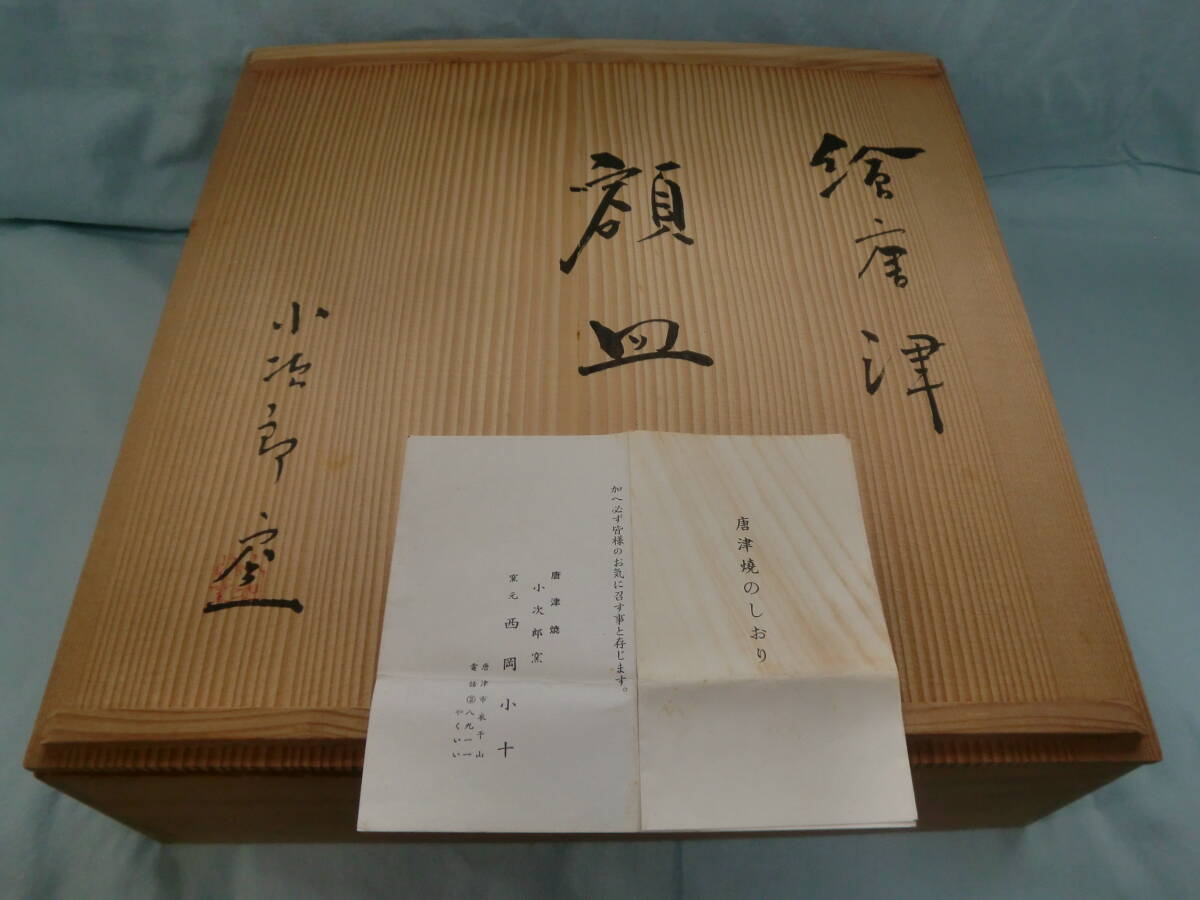 繪唐津
額皿
小次郎窯
唐津焼のしおり
加へ必ず皆様のお気に召す事と存じます。
唐津焼
小次郎窯
窯元 西岡小十
唐津市衣干山
電話②八九一一
やくいい